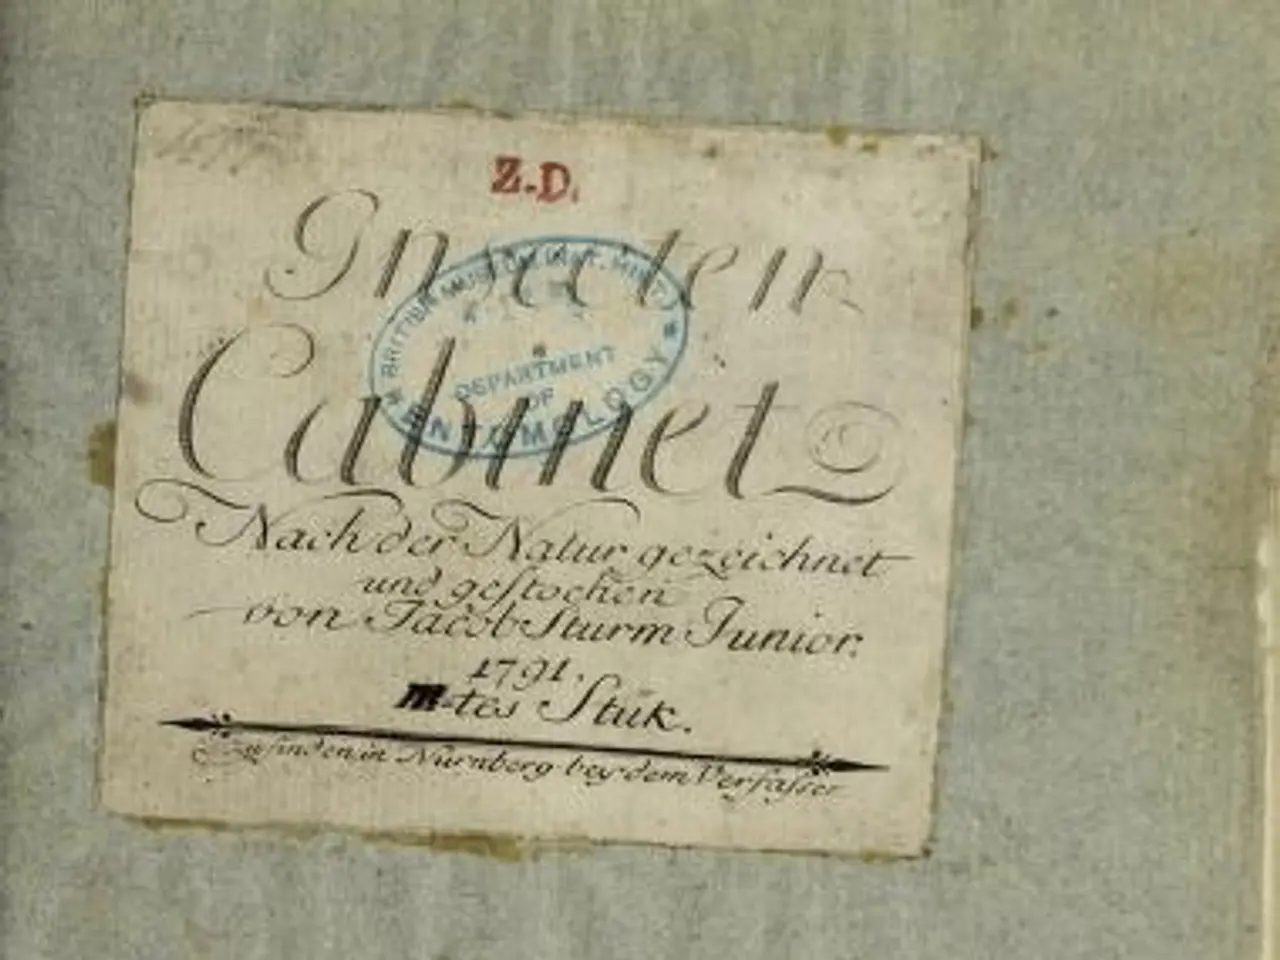 Z.D.
Insecten
BRITISH MUSEUM (NAT. HIST.)
DEPARTMENT
OF
ENTOMOLOGY
Cabinet
Nach der Natur gezeichnet
und gestochen
von Jacob Sturm Junior.
1791.
III-tes Stük.
Zu finden in Nürnberg bey dem Verfasser